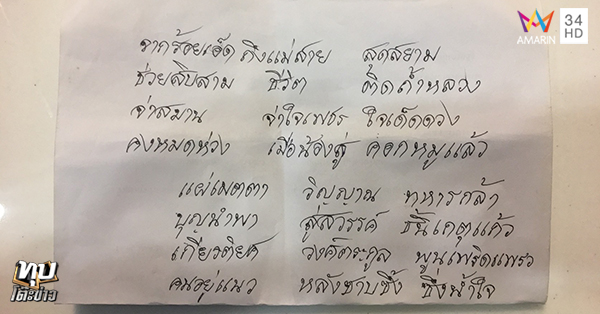 AMARIN
34
HD
จากร้อยเอ็ด ถึงแม่สาย สุดสยาม
ช่วยสิบสาม ชีวิต ติดถ้ำหลวง
จ่าสมาน จ่าใจเพชร ใจเด็ดดวง
คงหมดห่วง เมื่อน้องสู่ คอกหมูแล้ว
แผ่เมตตา วิญญาณ ทหารกล้า
บุญนำพา สู่สวรรค์ ชั้นเกตุแก้ว
เกียรติยศ วงศ์ตระกูล พูนเพริดแพรว
คนอยู่แนว หลังซาบซึ้ง ซึ่งน้ำใจ
ทุบ
โต๊ะข่าว